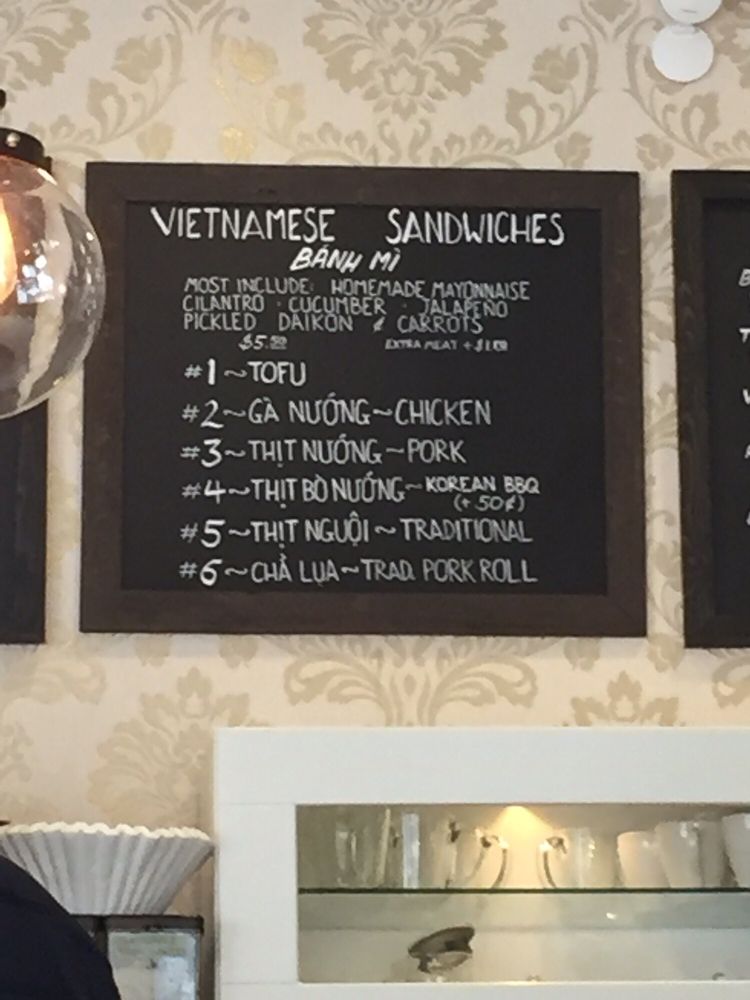 VIETNAMESE SANDWICHES
BÁNH MÌ
MOST INCLUDE: HOMEMADE MAYONNAISE
CILANTRO · CUCUMBER · JALAPEÑO
PICKLED DAIKON & CARROTS
$5.50 EXTRA MEAT +$1.00
#1~TOFU
#2~GÀ NƯỚNG~CHICKEN
#3~THỊT NƯỚNG~PORK
#4~THỊT BÒ NƯỚNG~KOREAN BBQ
(+50¢)
#5~THỊT NGUỘI~TRADITIONAL
#6~CHẢ LỤA~TRAD. PORK ROLL